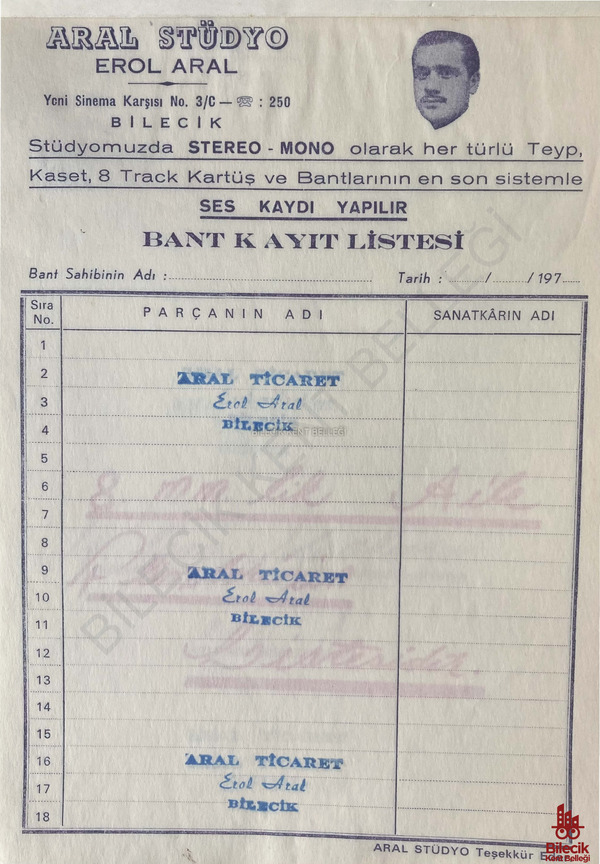 ARAL STÜDYO
EROL ARAL
Yeni Sinema Karşısı No. 3/C — ☎ : 250
BİLECİK
Stüdyomuzda STEREO - MONO olarak her türlü Teyp,
Kaset, 8 Track Kartüş ve Bantlarının en son sistemle
SES KAYDI YAPILIR
BANT KAYIT LİSTESİ
Bant Sahibinin Adı : Tarih : / / 197
Sıra No. PARÇANIN ADI SANATKÂRIN ADI
1
2 ARAL TİCARET
3 Erol Aral
4 BİLECİK
BİLECİK KENT BELLEĞİ
5
6 8 mm lik Aile
7
8
9 ARAL TİCARET
10 Erol Aral
11 BİLECİK
12
13
14
15
16 ARAL TİCARET
17 Erol Aral
18 BİLECİK
ARAL STÜDYO Teşekkür
Bilecik
Kent Belleği
BİLECİK KENT BELLEĞİ